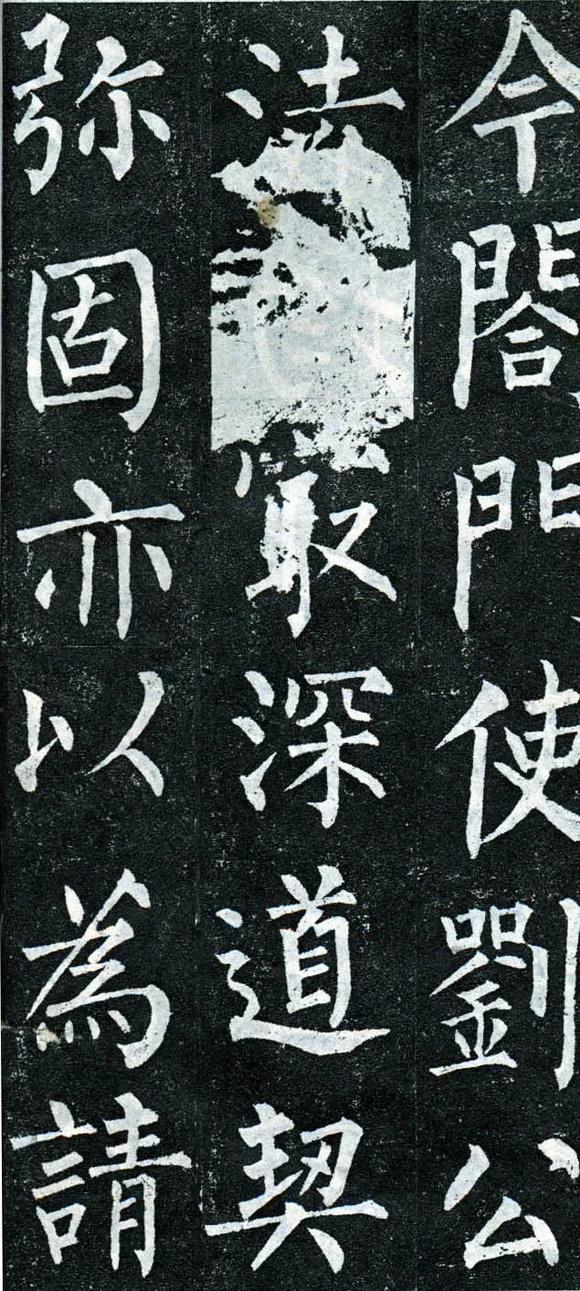 令閤門使劉公
法㝡深道契
弥固亦以為請